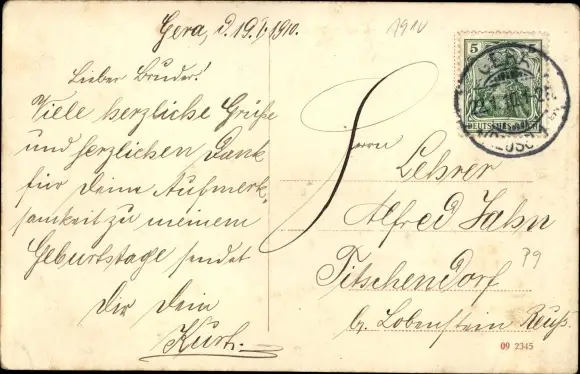 Gera, d. 19.1.1910.
Lieber Bruder!
Viele herzliche Grüße
und herzlichen Dank
für Deine Aufmerk-
samkeit zu meinem
Geburtstage sendet
Dir Dein
Kurt.
A910
5 5
DEUTSCHES REICH
GERA
(REUSS)
Herrn
Lehrer
Alfred Jahn
Titschendorf
b. Lobenstein Reuß.
P9
09 2345